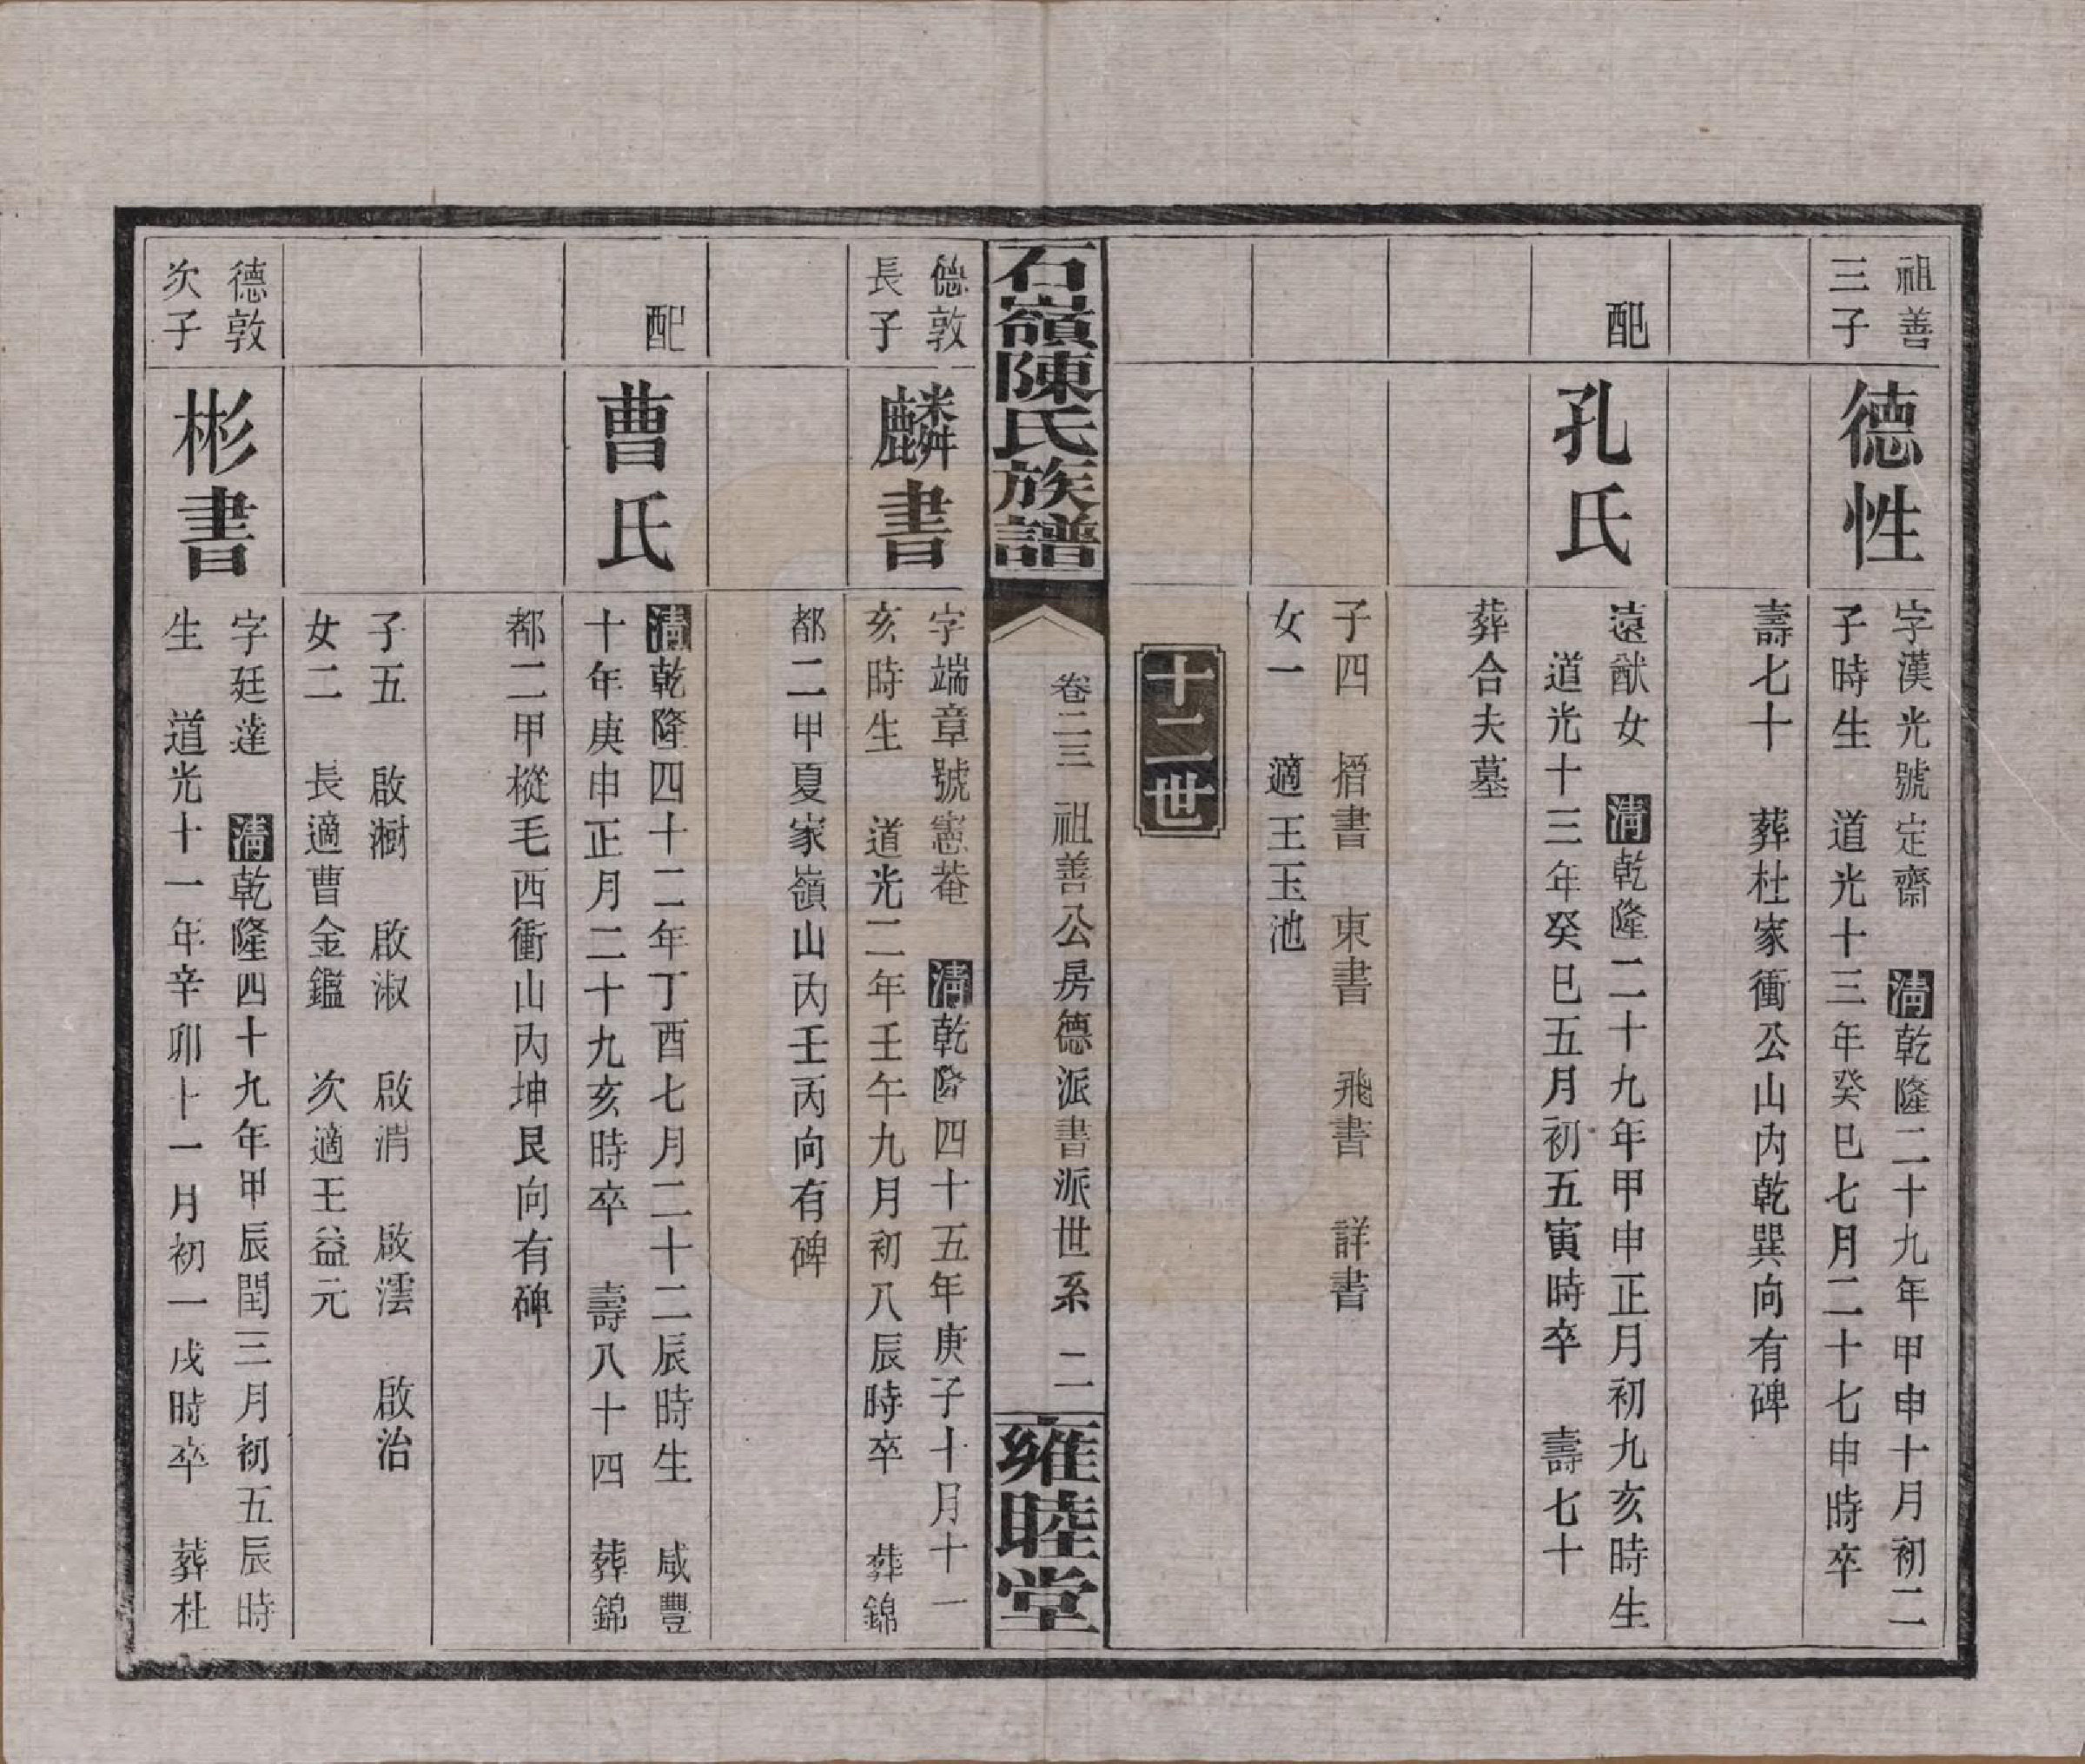 祖善
三子
德性
字漢光號定齋　清乾隆二十九年甲申十月初二
子時生　道光十三年癸巳七月二十七申時卒
壽七十　葬杜家衝公山內乾巽向有碑
配
孔氏
遠猷女　清乾隆二十九年甲申正月初九亥時生
道光十三年癸巳五月初五寅時卒　壽七十
葬合夫墓
子四　搢書　東書　飛書　詳書
女一　適王玉池
十二世
石嶺陳氏族譜
卷二三　祖善公房德派書派世系　二
雍睦堂
德敦
長子
麟書
字端章號憲菴　清乾隆四十五年庚子十月十一
亥時生　道光二年壬午九月初八辰時卒　葬錦
都二甲夏家嶺山內壬丙向有碑
配
曹氏
清乾隆四十二年丁酉七月二十二辰時生　咸豐
十年庚申正月二十九亥時卒　壽八十四　葬錦
都二甲樅毛西衝山內坤艮向有碑
子五　啟澍　啟淑　啟渭　啟澐　啟治
女二　長適曹金鑑　次適王益元
德敦
次子
彬書
字廷達　清乾隆四十九年甲辰閏三月初五辰時
生　道光十一年辛卯十一月初一戌時卒　葬杜